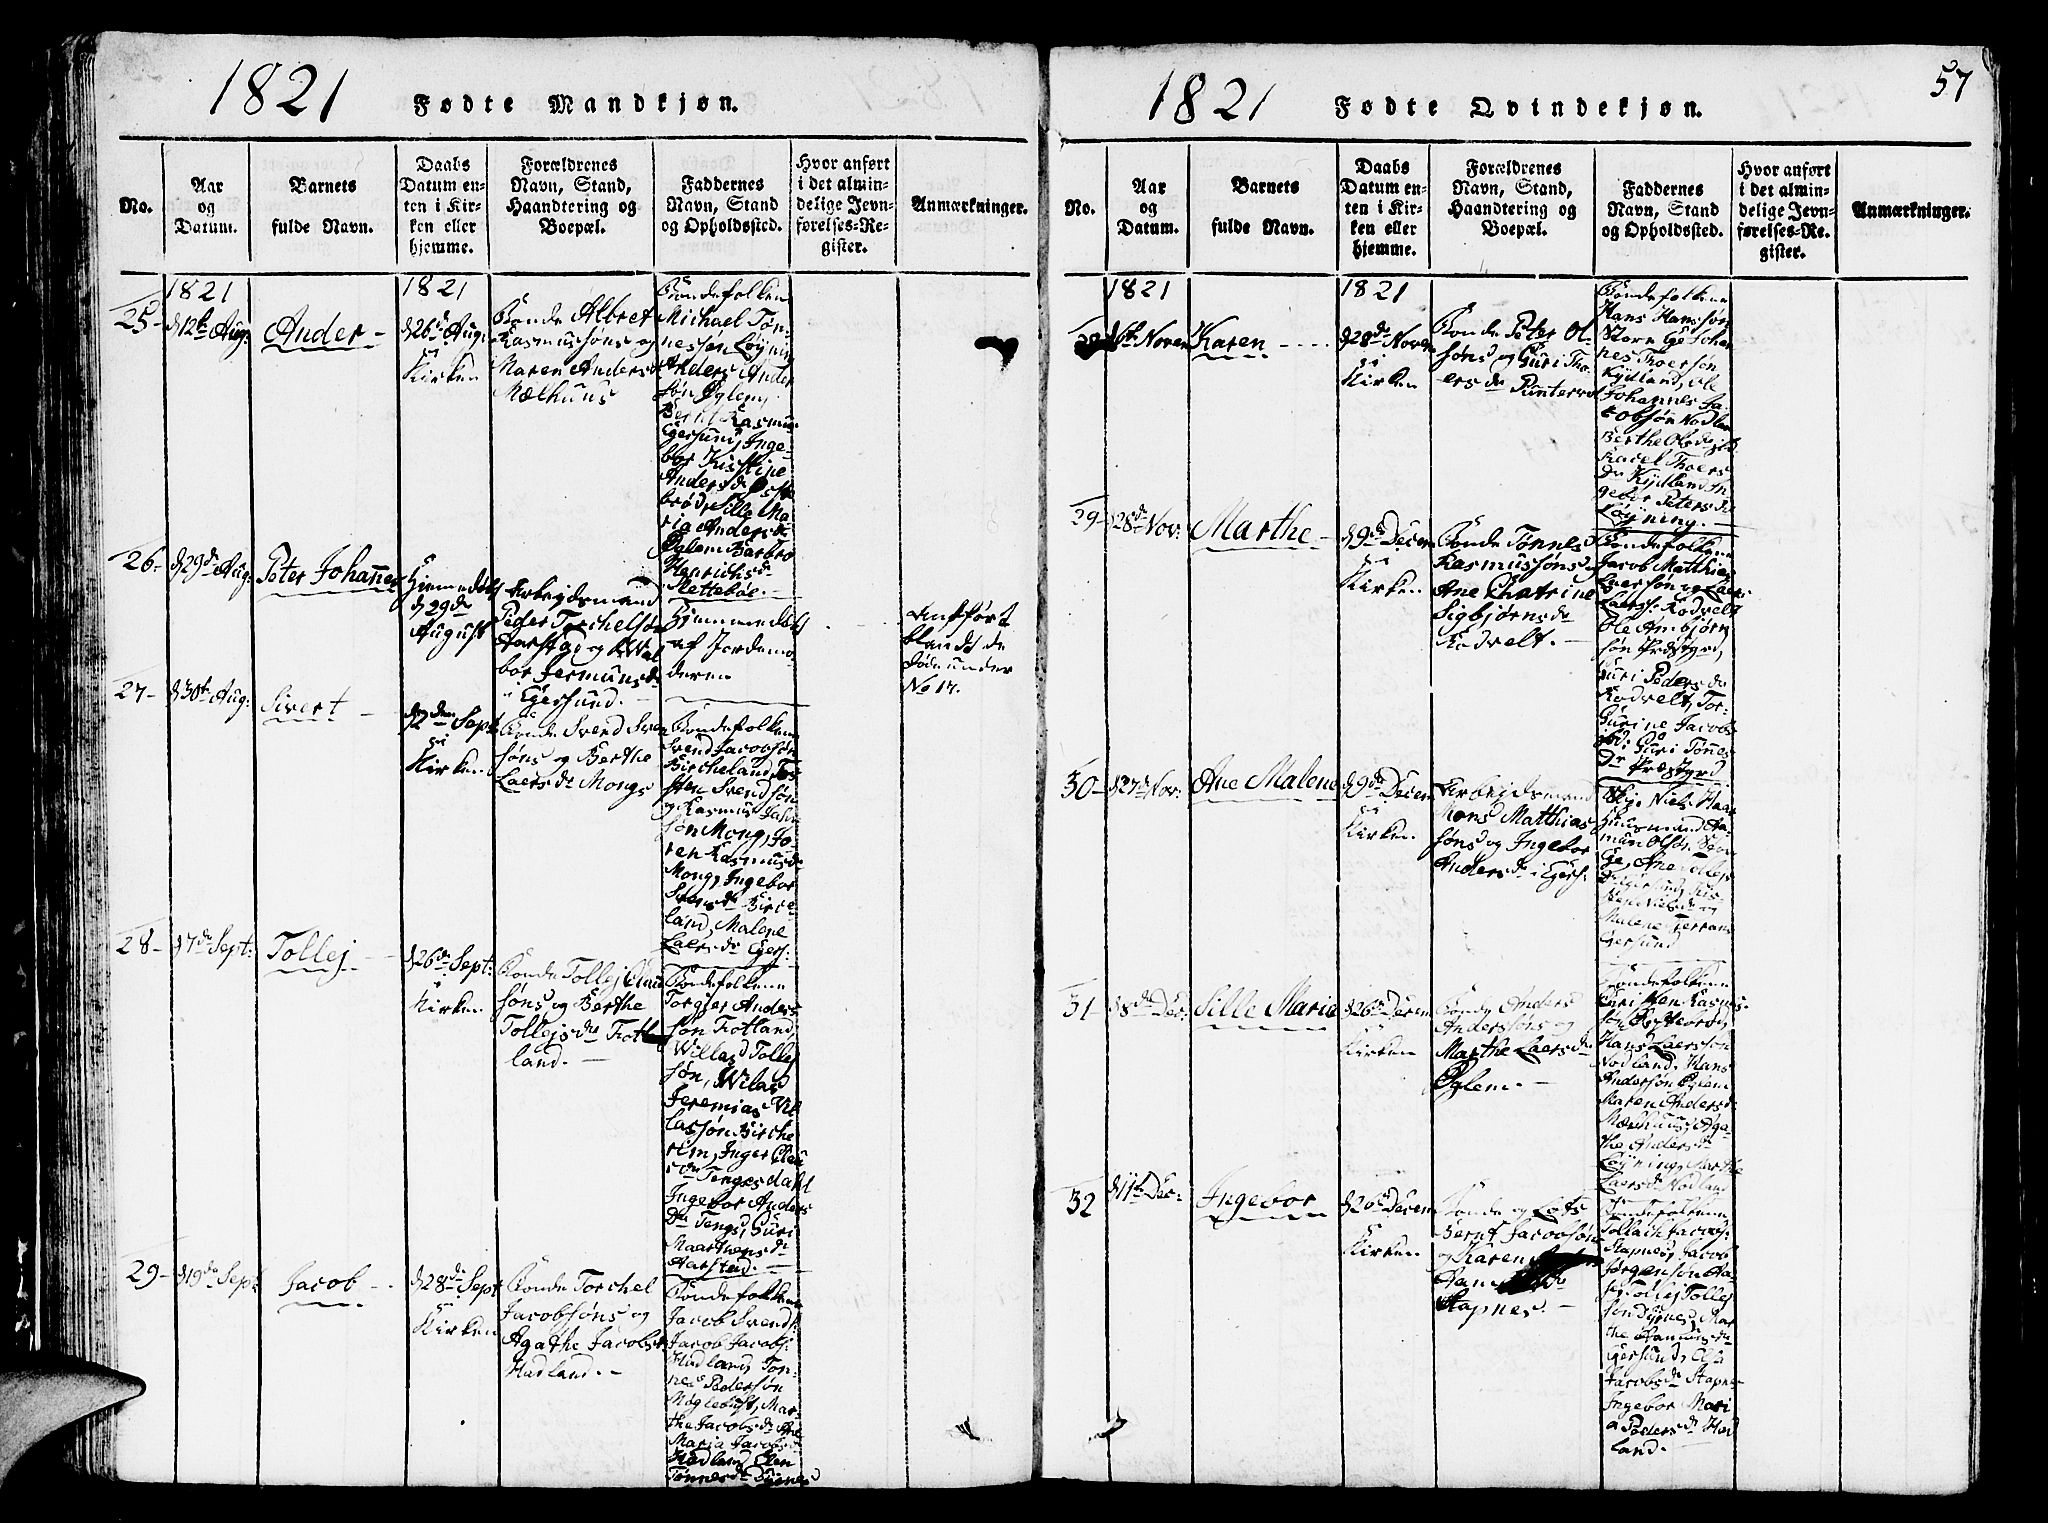 1821 Fødte Mandkjøn.
No.
Aar
og
Datum.
Barnets
fulde Navn.
Daabs
Datum en-
ten i Kir-
ken eller
hjemme.
Forældrenes
Navn, Stand,
Haandtering og
Boepæl.
Faddernes
Navn, Stand
og Opholdssted.
Hvor anført
i det almin-
delige Jevn-
førelses-Re-
gister.
Anmærkninger.
1821
25-
d 12te Aug:
Ander-
1821
d 26de Aug:
i
Kirken
Bonde Albret
Rasmussøns og
Maren Andersd
Mælhuus
Bondefolkene
Michael Tøn-
nessen Løyning
Anders Ander
søn Øglem,
Bernt Rasmus
Egersund, Inge-
bor Kistine
Andersdr
brød, Sille Ma-
ria Andersdr
Øglem Barbro
Henrichsdr
Slettebøe.-
26-
d 29de Aug:
Peter Johannes
Hiemedøbt
d 29de
August
Arbejdsmand
Peder Torchelsøn
Aarstad og
bor Jermunsdr
i Egersund.-
Hiemmedøbt
af Jordemo-
deren
Anfført
blandt de
døde under
No 17.
27-
d 30te Aug:
Sivert -
d 2den Sept
i
Kirken
Bonde Svend Sven
søns og Berthe
Laersdr Mongs
Bondefolkene
Svend Jacobsøn
Bircheland, Tos
sten Svendsøn
og Rasmus
søn Mong,
ren Rasmusdr
Mong, Ingebor
Svensdr Birke-
land, Malene
Laersdr Egers:
28-
d 7de Sept:
Tollej - -
d 26de Sept:
i
Kirken
Bonde Tollej
søns og Berthe
Tollejsdr Fiot
land.-
Bondefolkene
Torgier Anders
søn Fiotland,
Willas Tollej
søn, Wilas
Jeremias Vil
lassøn Birche
rem, Inger
dr Tengesdahl
Ingebor Anders
Dr Tengs, Guri
Maartensdr
Aarstad.-
29-
d 19de Sept
Jacob - -
d 28de Sept
i
Kirken
Bonde Torchel
Jacobsøns og
Agathe Jacobsdr
Hadland.-
Bondefolkene
Jacob Svends:
Jacob Jacobs:
Hadland, Tøn-
nes Pedersøn
Møglebust, Mar-
the Jacobsdr Ane
Maria Jacobsdr
Hadland, Elen
Tønnesdr
1821 Fødte Qvindekjøn.
57
No.
Aar
og
Datum.
Barnets
fulde Navn.
Daabs
Datum en-
ten i Kir-
ken eller
hjemme.
Forældrenes
Navn, Stand,
Haandtering og
Boepæl.
Faddernes
Navn, Stand
og Opholdssted.
Hvor anført
i det almin-
delige Jevn-
førelses-Re-
gister.
Anmærkninger.
1821
Noven
Karen - - - -
1821
d 28de Noven
i
Kirken
Bonde Peter Ol-
søns og Guri Tho-
ersdr Puntervol
Bondefolkene
Hans Hanssøn
Johan
nes Thoersøn
Kydland, Ole
Johannes Ja-
cobsøn Nodland
Berthe Olsdr
Rachel Thoers
dr Kydland In
gebor Petersdr
Løyning.-
29-
d 28de Nov:
Marthe -
d 9de Decem
i
Kirken
Bonde Tønnes
Rasmussøns og
Ane Chatrine
Sigbjørnsdr
Rodvelt.-
Bondefolkene
Jacob Matthias
Laersøn og Laers
Laers: Rodvelt
Ole Ambjørn
søn Præstgrd,
Guri Pedersdr
Rodvelt, Tor-
Gurine Jacobs
Guri Tønnes
Dr Præstgrd
30-
d 27de Nov:
Ane Malene
d 9de Decem
i
Kirken
Arbejdsmand
Mons Matthias
søns og Ingebor
Andersdr i Egers:
Niels Haar
Huusmand Aa-
mun Olsøn
Ane Tollejs
Egersund,
Nielsdr og
Malene
Egersund
31-
d 8de Dec:
Sille Maria
d 26de Decem
i
Kirken
Bonde Anders
Anderssøns og
Marthe Laersdr
Øglem.-
Bondefolkene
Christen Rasmus-
søn
Hans Laerssøn
Nodland, Hans
Andersøn Øglem
Maren Andersdr
Mælhuus, Aga-
the Andersdr
Løyning, Marthe
Laersdr Nodland
32
d 11te Dec:
Ingebor
d 26de Decem
i
Kirken
Bonde og Lots
Bernt Jacobsøns
og Karen
Stapnes.-
Bondefolkene
Tollach Jacobs:
Stapnes, Jacob
Jørgensøn Aa-
Tollej Tollej
søn
the
Egersund, Elsa
Jacobsdr Stapnes
Ingebor Mari
a Pedersdr Had
land.-